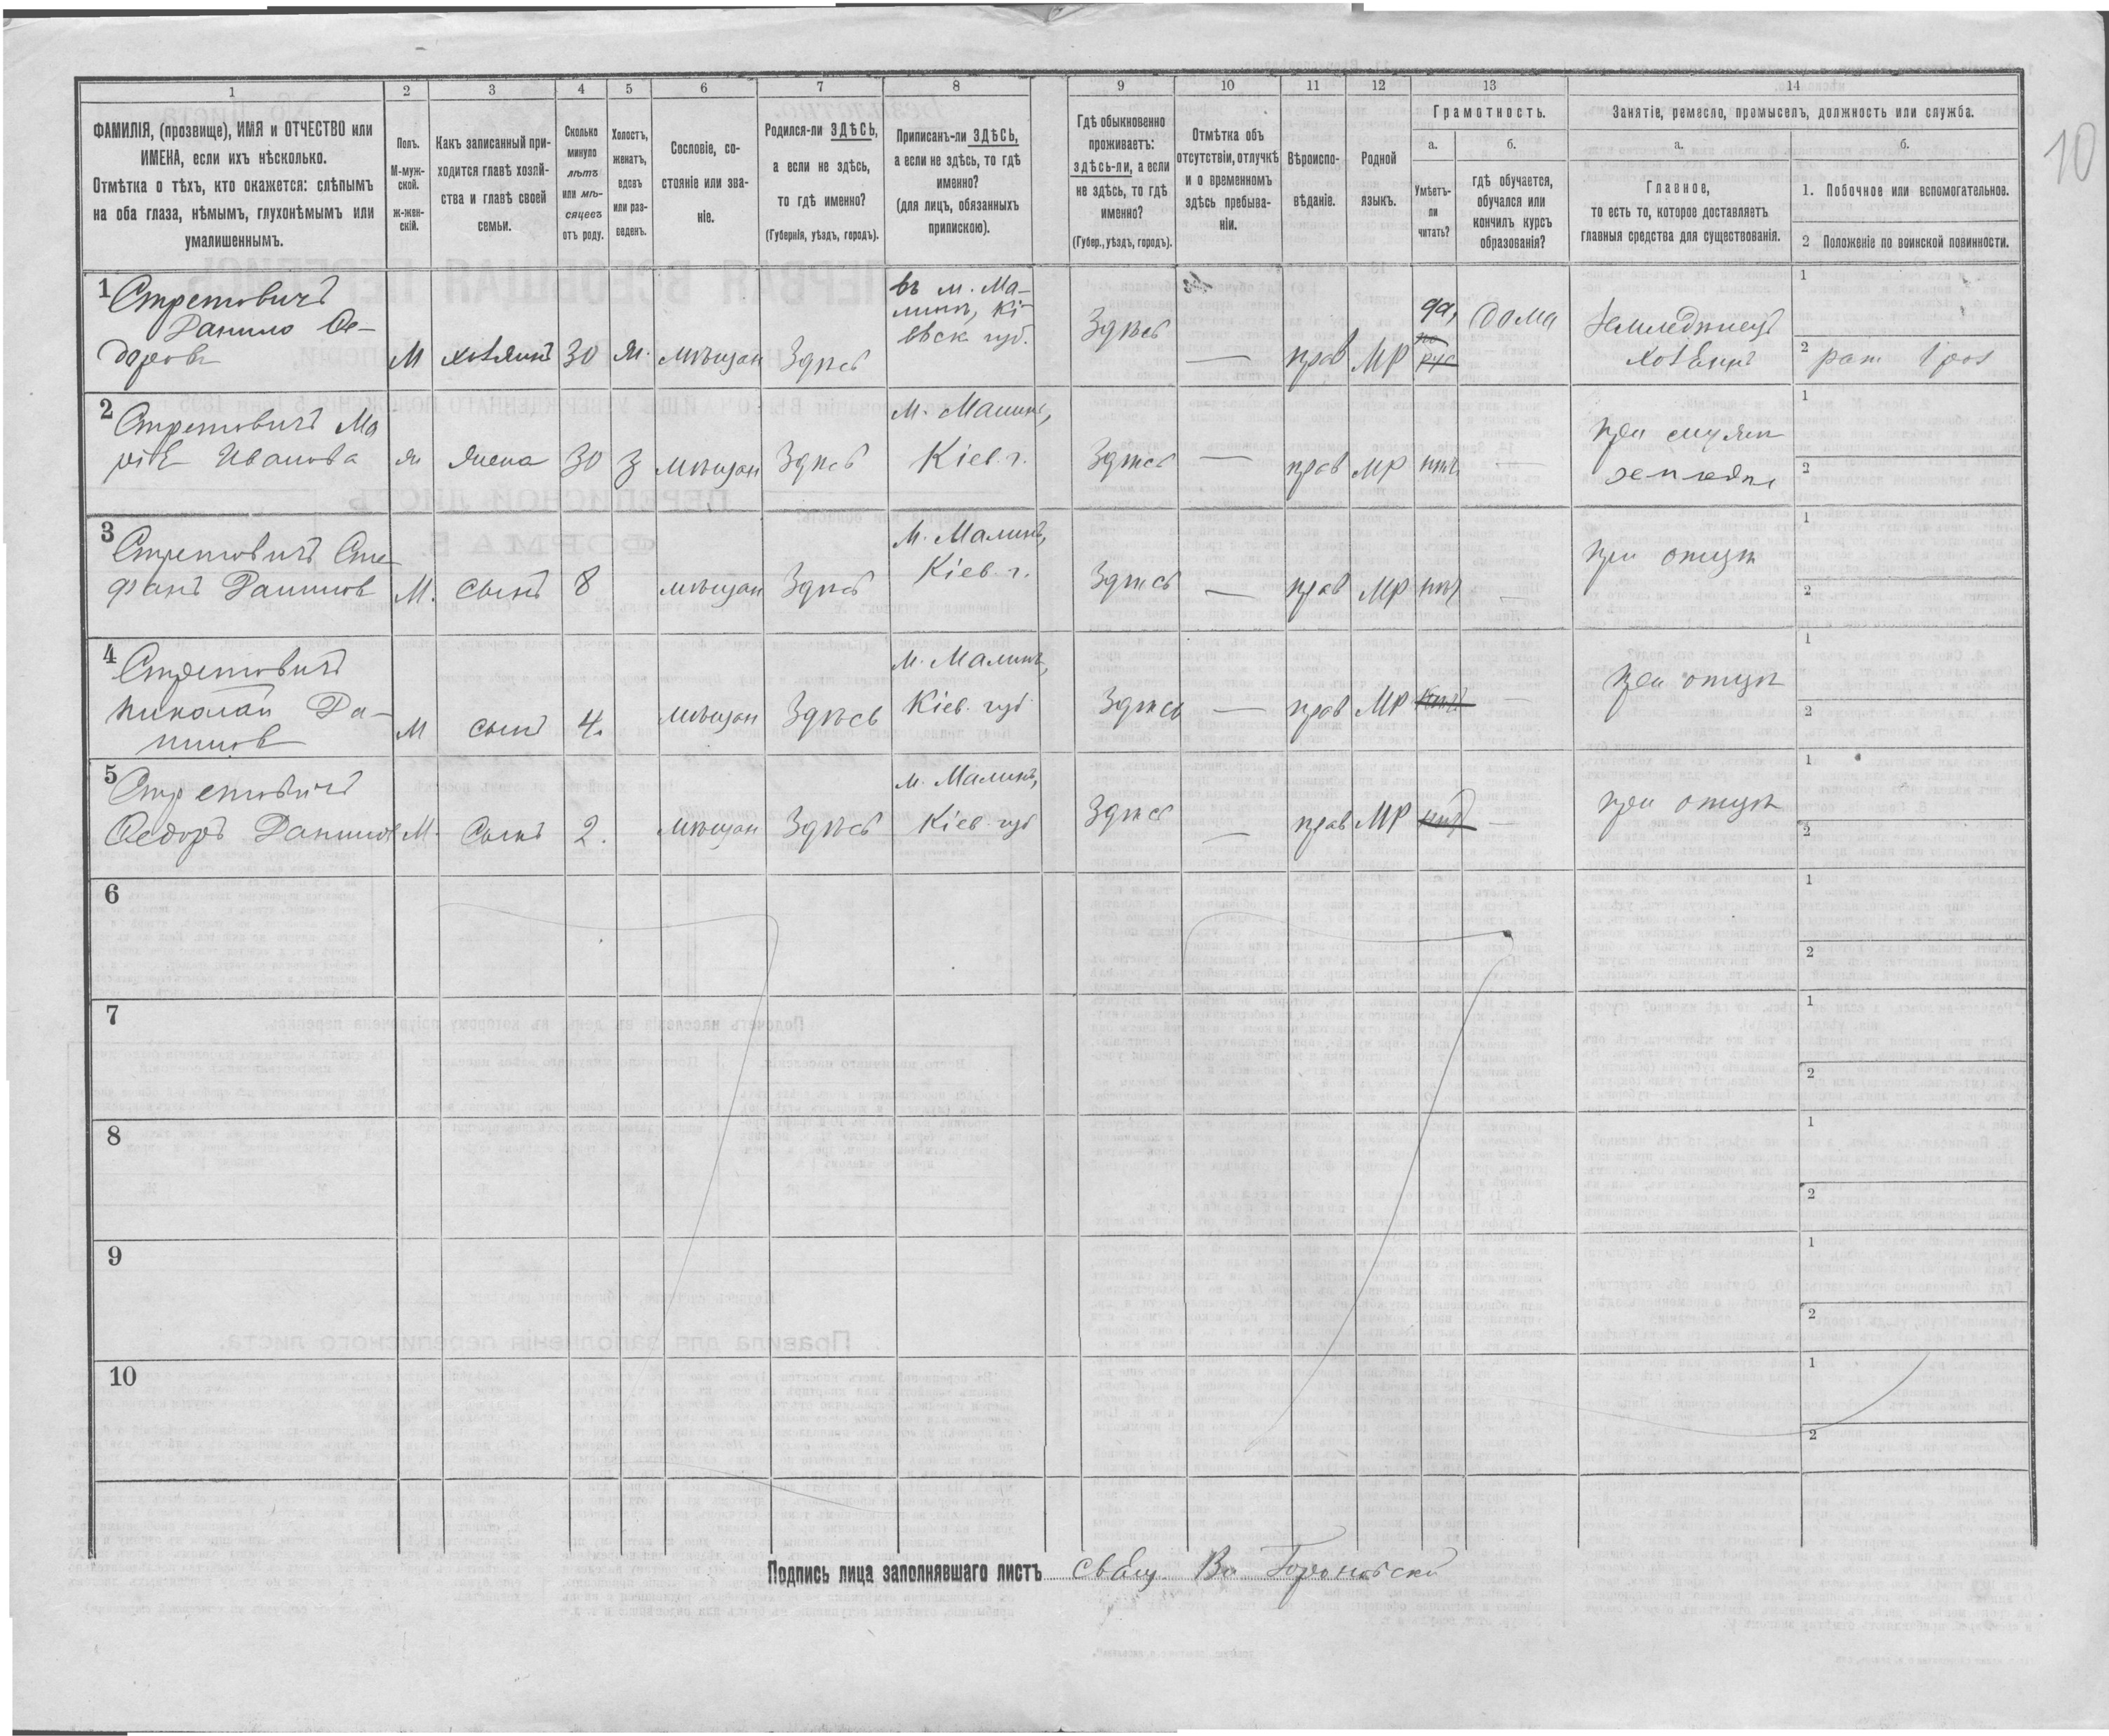 10
1
2
3
4
5
6
7
8
9
10
11
12
13
14
ФАМИЛІЯ, (прозвище), ИМЯ и ОТЧЕСТВО или
ИМЕНА, если ихъ нѣсколько.
Отмѣтка о тѣхъ, кто окажется: слѣпымъ
на оба глаза, нѣмымъ, глухонѣмымъ или
умалишеннымъ.
Полъ.
М-муж-
ской.
ж-жен-
скій.
Какъ записанный при-
ходится главѣ хозяй-
ства и главѣ своей
семьи.
Сколько
минуло
лѣтъ
или мѣ-
сяцевъ
отъ роду.
Холостъ,
женатъ,
вдовъ
или раз-
веденъ.
Сословіе, со-
стояніе или зва-
ніе.
Родился-ли ЗДѢСЬ,
а если не здѣсь,
то гдѣ именно?
(Губернія, уѣздъ, городъ).
Приписанъ-ли ЗДѢСЬ,
а если не здѣсь, то гдѣ
именно?
(для лицъ, обязанныхъ
припискою).
Гдѣ обыкновенно
проживаетъ:
здѣсь-ли, а если
не здѣсь, то гдѣ
именно?
(Губер., уѣздъ, городъ).
Отмѣтка объ
отсутствіи, отлучкѣ
и о временномъ
здѣсь пребыва-
ніи.
Вѣроиспо-
вѣданіе.
Родной
языкъ.
Грамотность.
а.
Умѣетъ-
ли
читать?
б.
гдѣ обучается,
обучался или
кончилъ курсъ
образованія?
Занятіе, ремесло, промыселъ, должность или служба.
а.
Главное,
то есть то, которое доставляетъ
главныя средства для существованія.
б.
1. Побочное или вспомогательное.
2 Положеніе по воинской повинности.
1 Стретовичъ
Данило Ѳе-
доровъ
М
хозяинъ
30
ж.
мѣщан
Здѣсь
въ м. Ма-
линѣ, Кі-
евск. губ.
Здѣсь
—
прав
МР
да,
по
рус
дома
Земледѣлецъ
хозяинъ
1
2 рат 1 раз
2 Стретовичъ Ма
рія Иванова
ж
жена
30
З
мѣщан
Здѣсь
м. Малинъ,
Кіев. г.
Здѣсь
—
прав
МР
нѣтъ
—
при мужѣ
1
2
3 Стретовичъ Сте
фанъ Данилов
М.
сынъ
8
мѣщан
Здѣсь
м. Малинъ,
Кіев. г.
Здѣсь
—
прав
МР
нѣтъ
—
при отцѣ
1
2
4 Стретовичъ
Николай Да-
нилов
М
сынъ
4.
мѣщан
Здѣсь
м. Малинъ,
Кіев. губ
Здѣсь
—
прав
МР
нѣтъ
—
при отцѣ
1
2
5 Стретовичъ
Ѳедоръ Данилов
М.
Сынъ
2.
мѣщан
Здѣсь
м. Малинъ,
Кіев. губ
Здѣсь
—
прав
МР
нѣтъ
—
при отцѣ
1
2
6
1
2
7
1
2
8
1
2
9
1
2
10
1
2
Подпись лица заполнявшаго листъ Свящ.